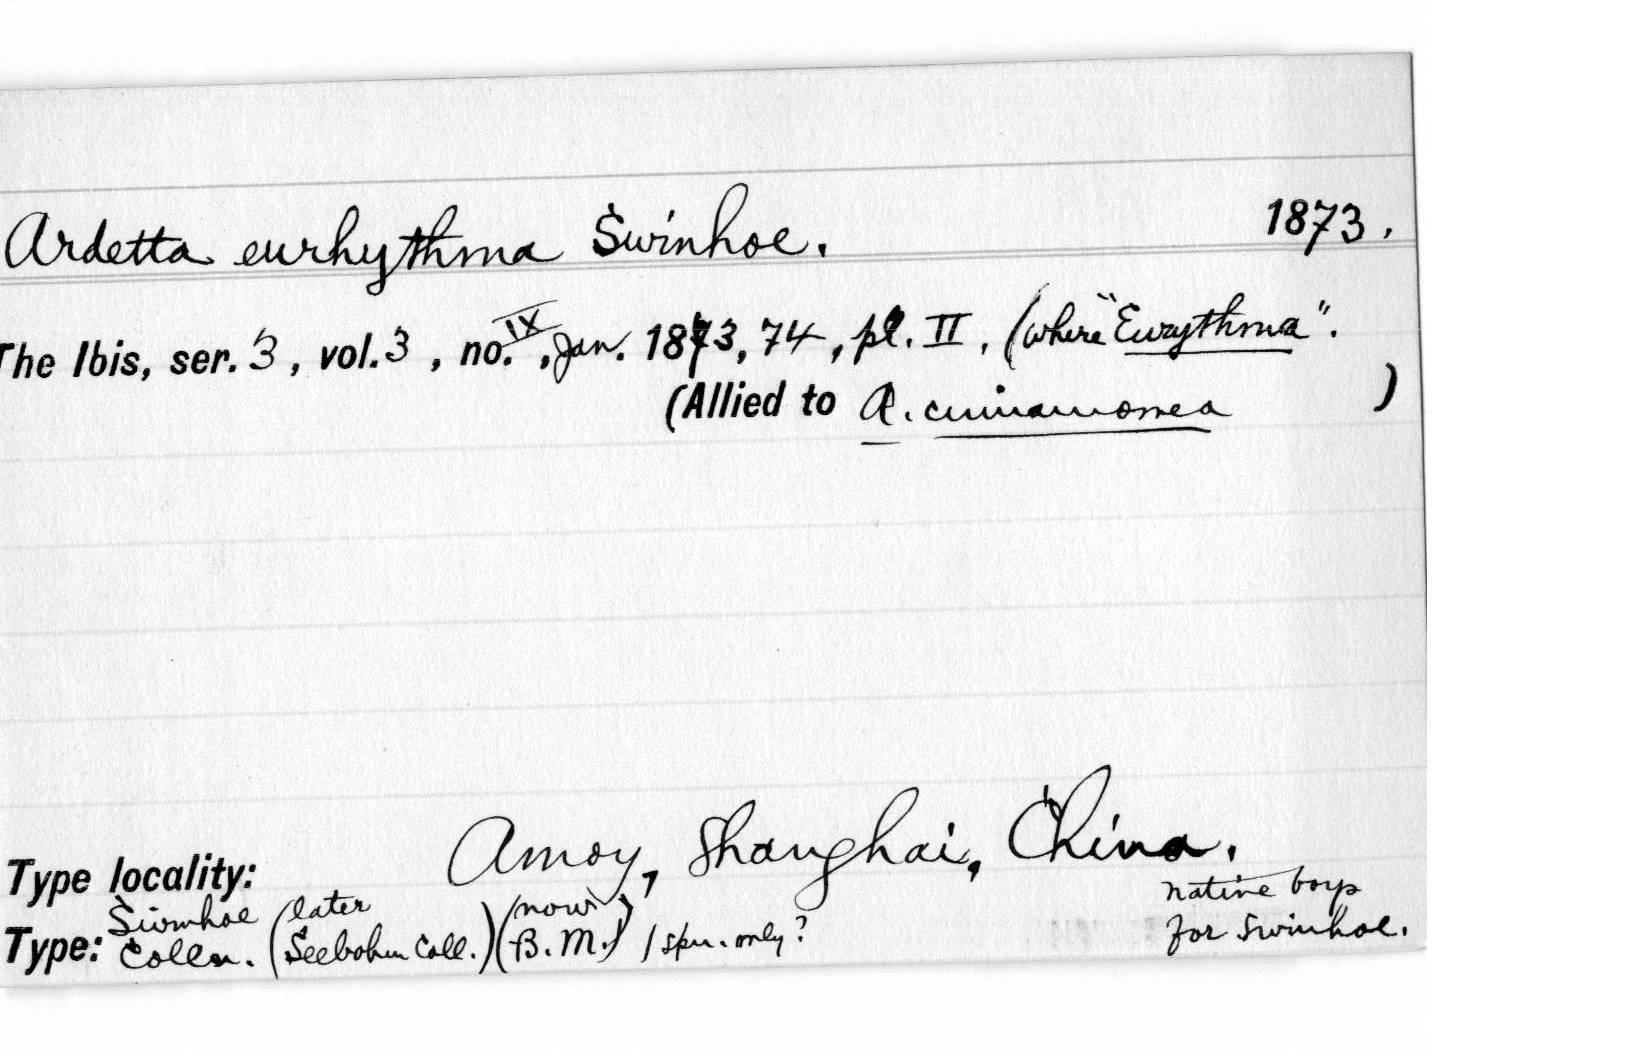 Ardetta eurhythma Swinhoe. 1873.
The Ibis, ser. 3, vol. 3, no. IX, Jan. 1873, 74, pl. II, (where "Eurythma".
(Allied to A. cinnamomea )
Type locality: Amoy, Shanghai, China.
Type: Swinhoe Colln. (later Seebohm Coll.) (now B.M.) 1 spn. only? native boys for Swinhoe.